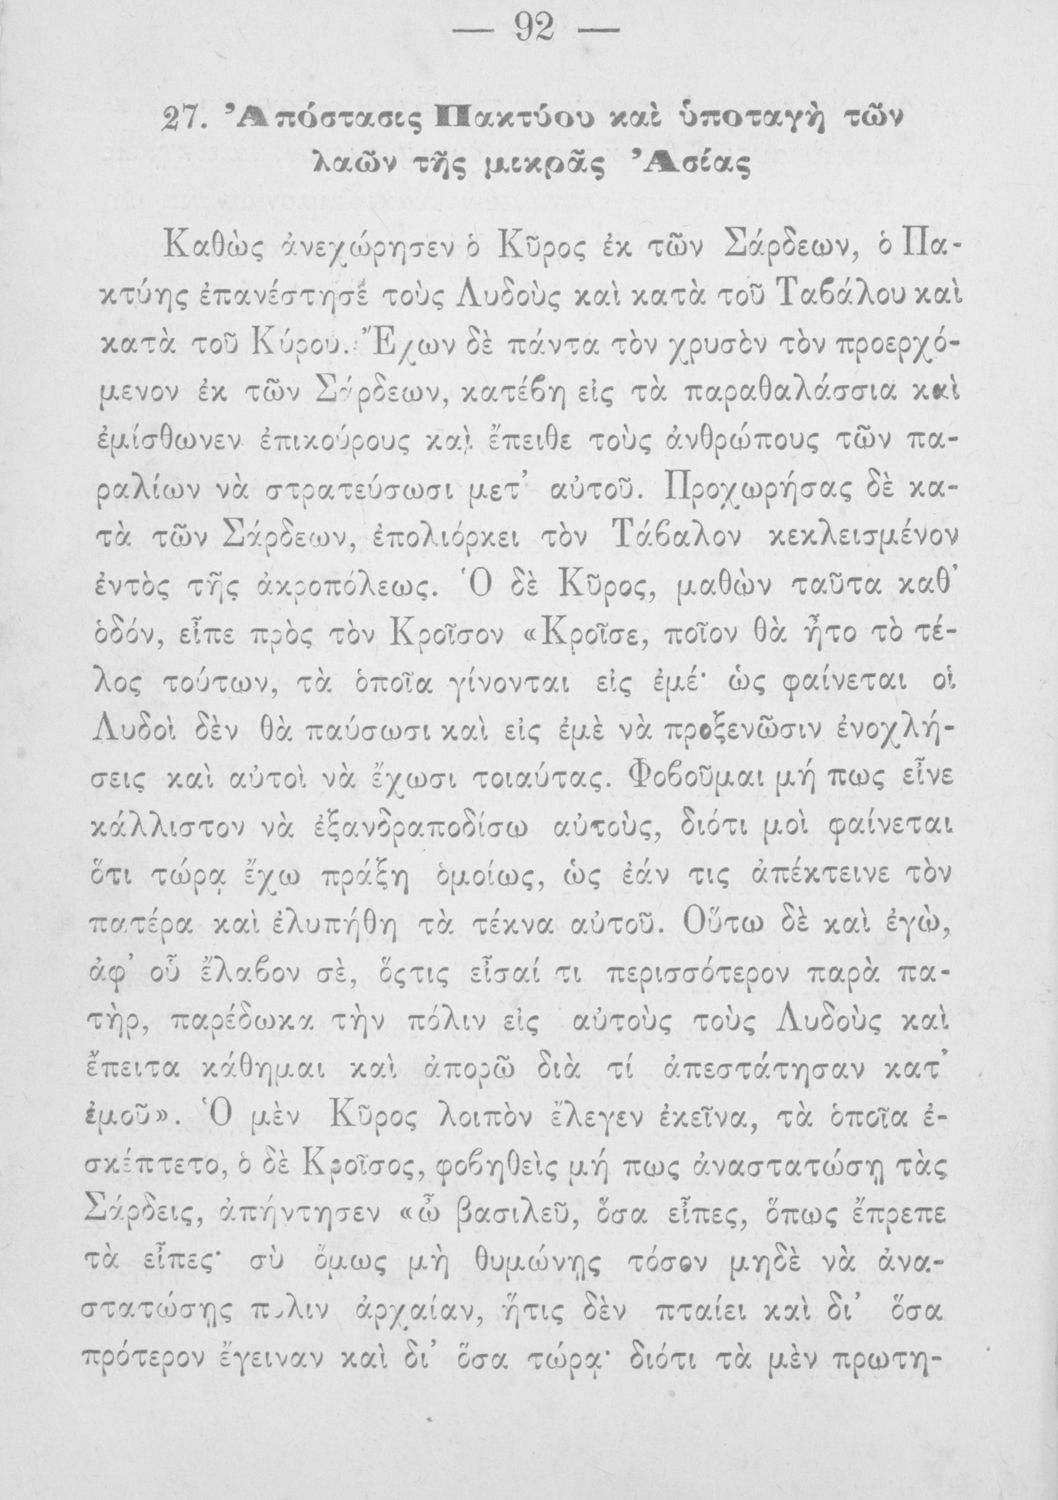 — 92 —
27. Ἀπόστασις Πακτύου καὶ ὑποταγὴ τῶν
λαῶν τῆς μικρᾶς Ἀσίας
Καθὼς ἀνεχώρησεν ὁ Κῦρος ἐκ τῶν Σάρδεων, ὁ Πα-
κτύης ἐπανέστησε τοὺς Λυδοὺς καὶ κατὰ τοῦ Ταβάλου καὶ
κατὰ τοῦ Κύρου. Ἔχων δὲ πάντα τὸν χρυσὸν τὸν προερχό-
μενον ἐκ τῶν Σάρδεων, κατέβη εἰς τὰ παραθαλάσσια καὶ
ἐμίσθωνεν ἐπικούρους καὶ ἔπειθε τοὺς ἀνθρώπους τῶν πα-
ραλίων νὰ στρατεύσωσι μετ’ αὐτοῦ. Προχωρήσας δὲ κα-
τὰ τῶν Σάρδεων, ἐπολιόρκει τὸν Τάβαλον κεκλεισμένον
ἐντὸς τῆς ἀκροπόλεως. Ὁ δὲ Κῦρος, μαθὼν ταῦτα καθ’
ὁδόν, εἶπε πρὸς τὸν Κροῖσον «Κροῖσε, ποῖον θὰ ἦτο τὸ τέ-
λος τούτων, τὰ ὁποῖα γίνονται εἰς ἐμέ· ὡς φαίνεται οἱ
Λυδοὶ δὲν θὰ παύσωσι καὶ εἰς ἐμὲ νὰ προξενῶσιν ἐνοχλή-
σεις καὶ αὐτοὶ νὰ ἔχωσι τοιαύτας. Φοβοῦμαι μή πως εἶνε
κάλλιστον νὰ ἐξανδραποδίσω αὐτοὺς, διότι μοὶ φαίνεται
ὅτι τώρα ἔχω πράξη ὁμοίως, ὡς ἐάν τις ἀπέκτεινε τὸν
πατέρα καὶ ἐλυπήθη τὰ τέκνα αὐτοῦ. Οὕτω δὲ καὶ ἐγὼ,
ἀφ’ οὗ ἔλαβον σὲ, ὅςτις εἶσαί τι περισσότερον παρὰ πα-
τὴρ, παρέδωκα τὴν πόλιν εἰς αὐτοὺς τοὺς Λυδοὺς καὶ
ἔπειτα κάθημαι καὶ ἀπορῶ διὰ τί ἀπεστάτησαν κατ’
ἐμοῦ». Ὁ μὲν Κῦρος λοιπὸν ἔλεγεν ἐκεῖνα, τὰ ὁποῖα ἐ-
σκέπτετο, ὁ δὲ Κροῖσος, φοβηθεὶς μή πως ἀναστατώσῃ τὰς
Σάρδεις, ἀπήντησεν «ὦ βασιλεῦ, ὅσα εἶπες, ὅπως ἔπρεπε
τὰ εἶπες· σὺ ὅμως μὴ θυμώνῃς τόσον μηδὲ νὰ ἀνα-
στατώσῃς πόλιν ἀρχαίαν, ἥτις δὲν πταίει καὶ δι’ ὅσα
πρότερον ἔγειναν καὶ δι’ ὅσα τώρᾳ· διότι τὰ μὲν πρωτη-